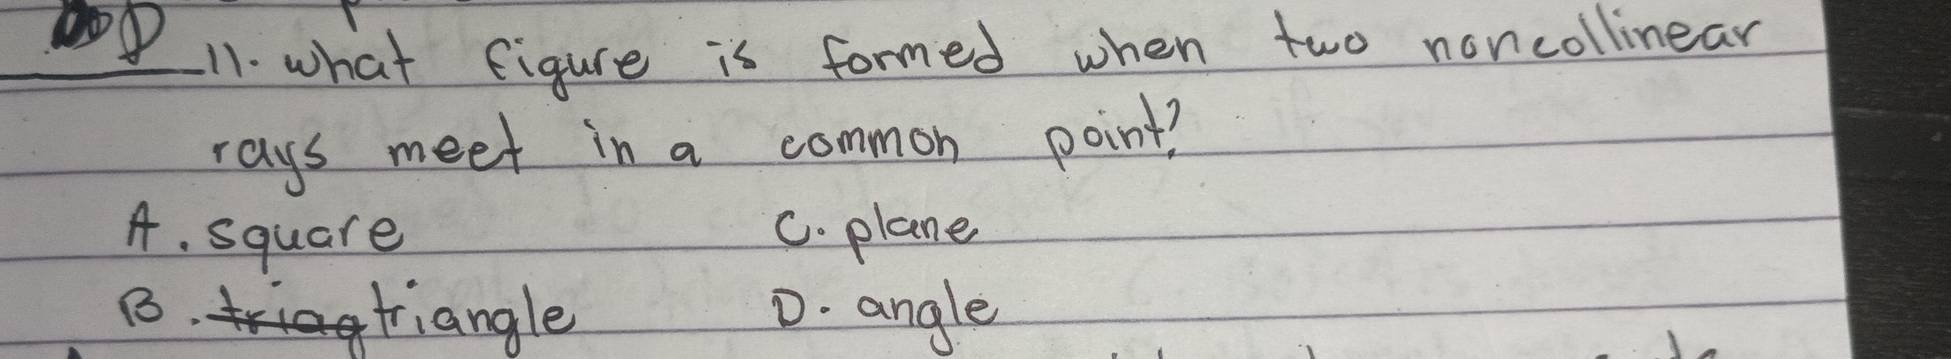 D 11. what figure is formed when two noncollinear
rays meet in a common point?
A. square C. plane
B. triag triangle D. angle